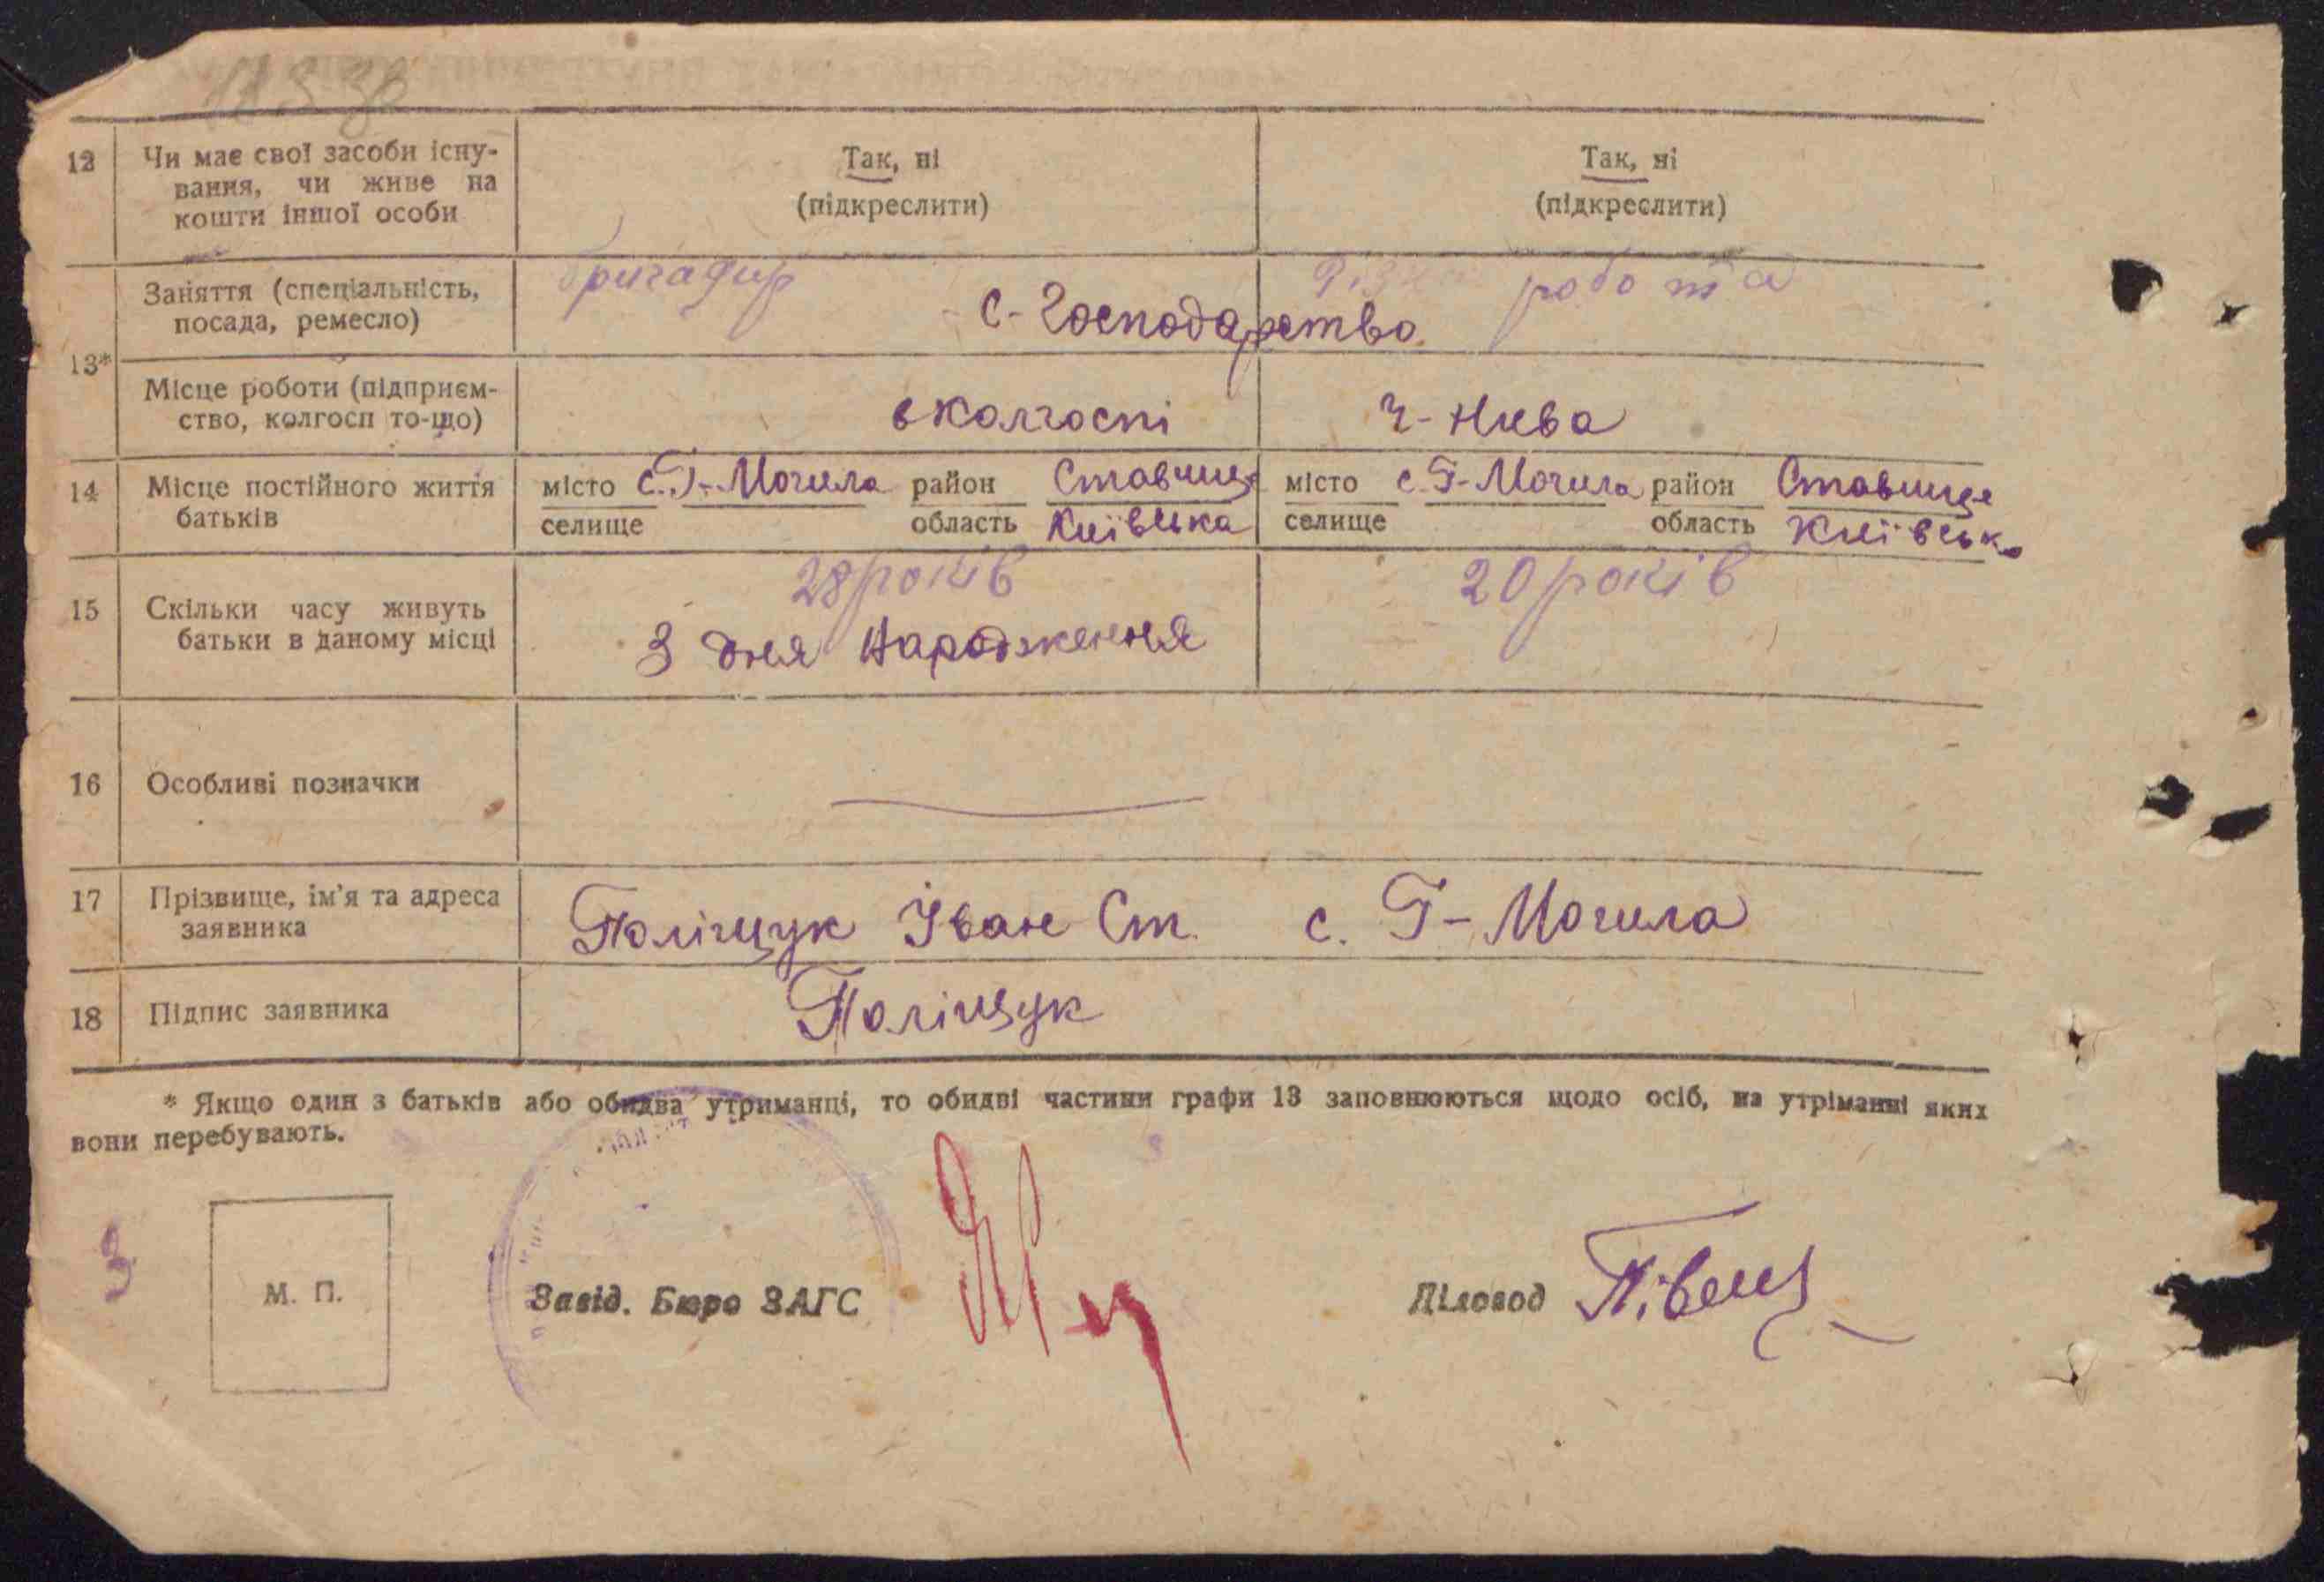 12 Чи має свої засоби існу-
вання, чи живе на
кошти іншої особи
Так, ні
(підкреслити)
Так, ні
(підкреслити)
13*
Заняття (спеціальність,
посада, ремесло)
бригадир
робота
с-господарство
Місце роботи (підприєм-
ство, колгосп то-що)
в колгоспі Ч-Нива
14 Місце постійного життя
батьків
місто с. Г-Могила район Ставище
селище область Київська
місто с. Г-Могила район Ставище
селище область Київськ
15 Скільки часу живуть
батьки в даному місці
28 років
З дня Народження
20 років
16 Особливі позначки
17 Прізвище, ім'я та адреса
заявника
Поліщук Іван Ст. с. Г-Могила
18 Підпис заявника
Поліщук
* Якщо один з батьків або обидва утриманці, то обидві частини графи 13 заповнюються щодо осіб, на утріманні яких
вони перебувають.
М. П.
Завід. Бюро ЗАГС
Діловод Півень